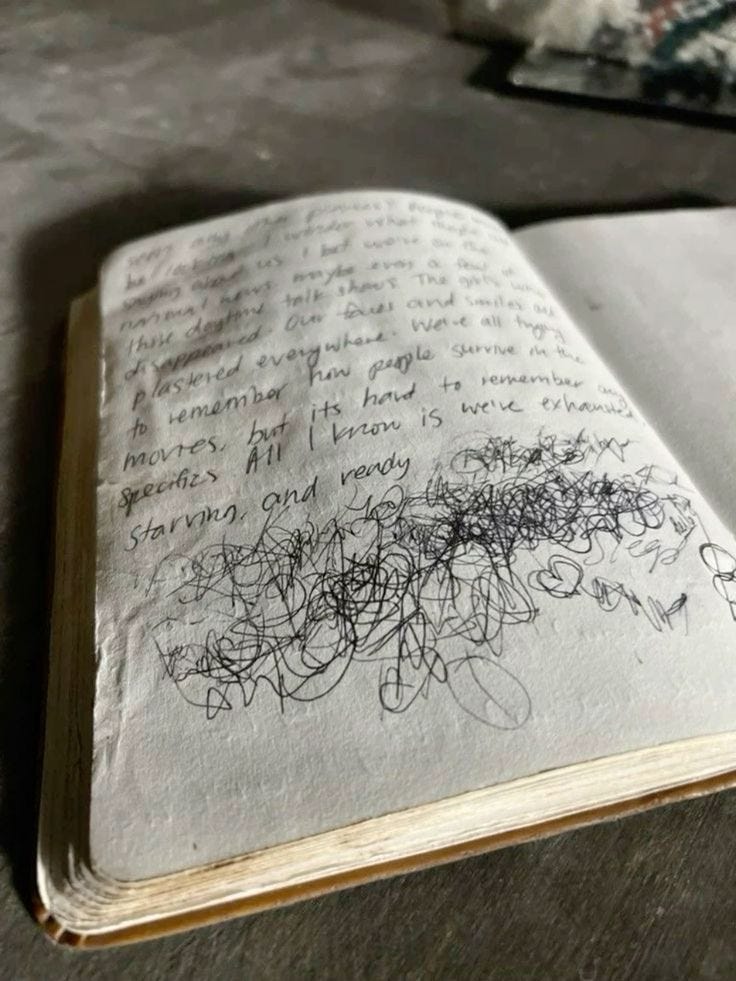 seen any other planes? people
be looking. I wonder what maybe
saying about us I bet we're on the
normal news. maybe even a few of
those daytime talk shows. The girls who
disappeared. Our faces and smiles are
plastered everywhere. We're all trying
to remember how people survive in the
movies, but its hard to remember any
specifics All I know is we're exhausted,
starving, and ready